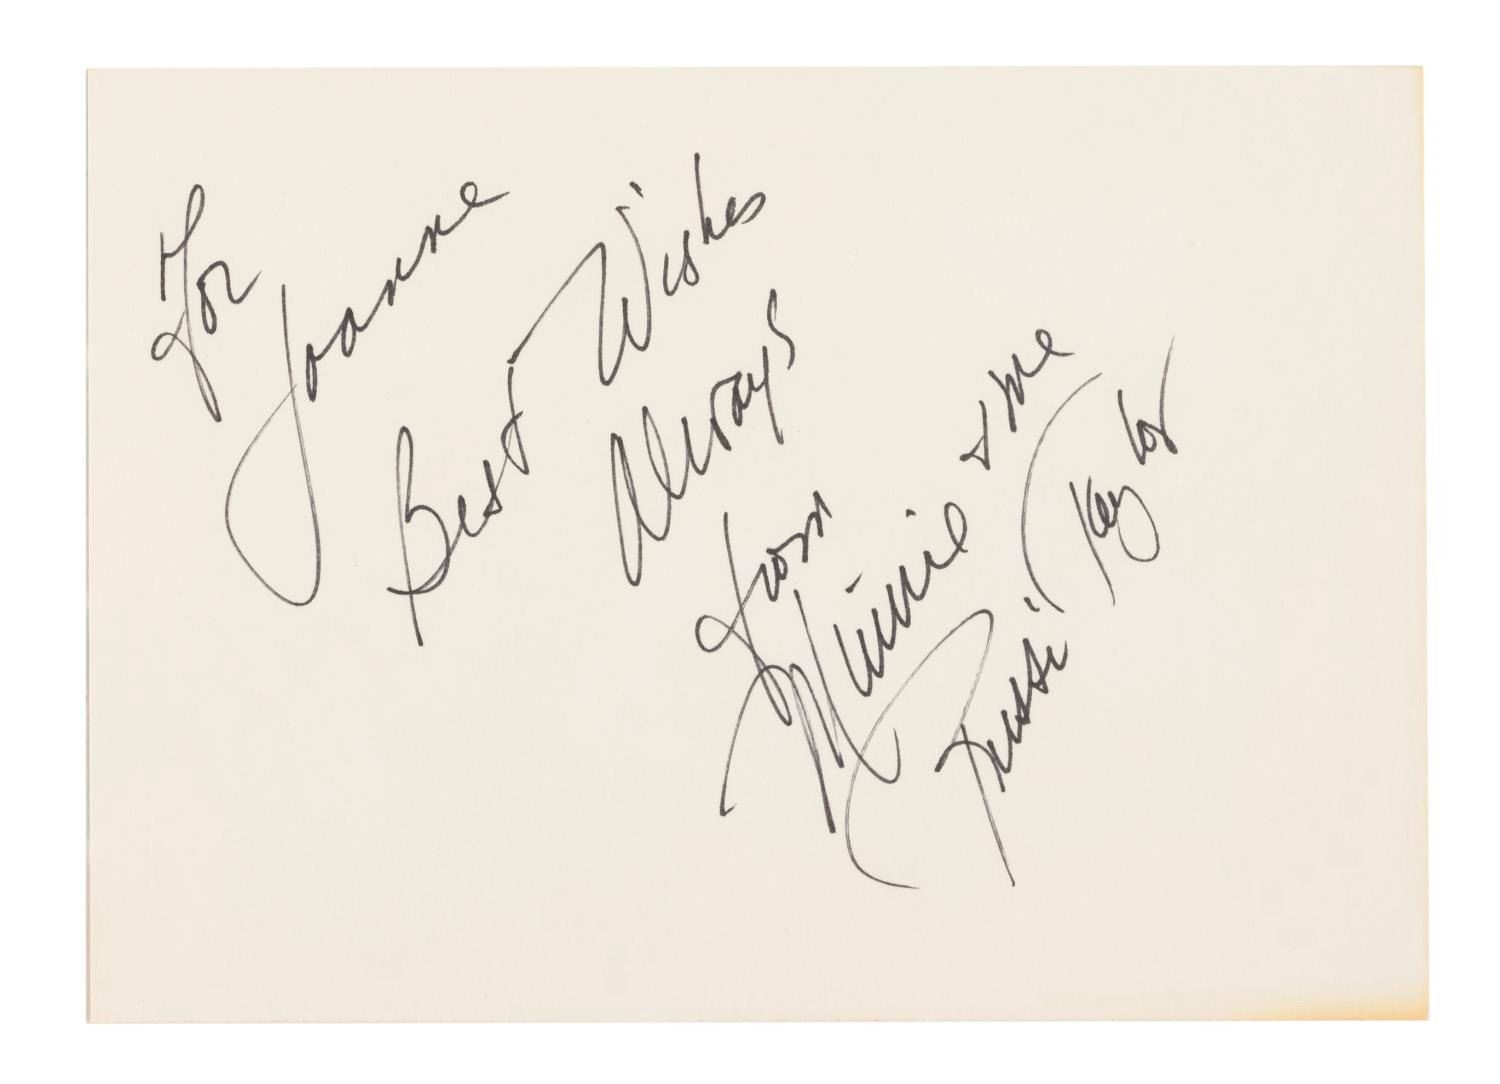 For
Joanne
Best Wishes
Always
From
Minnie & me
(Russi Taylor)